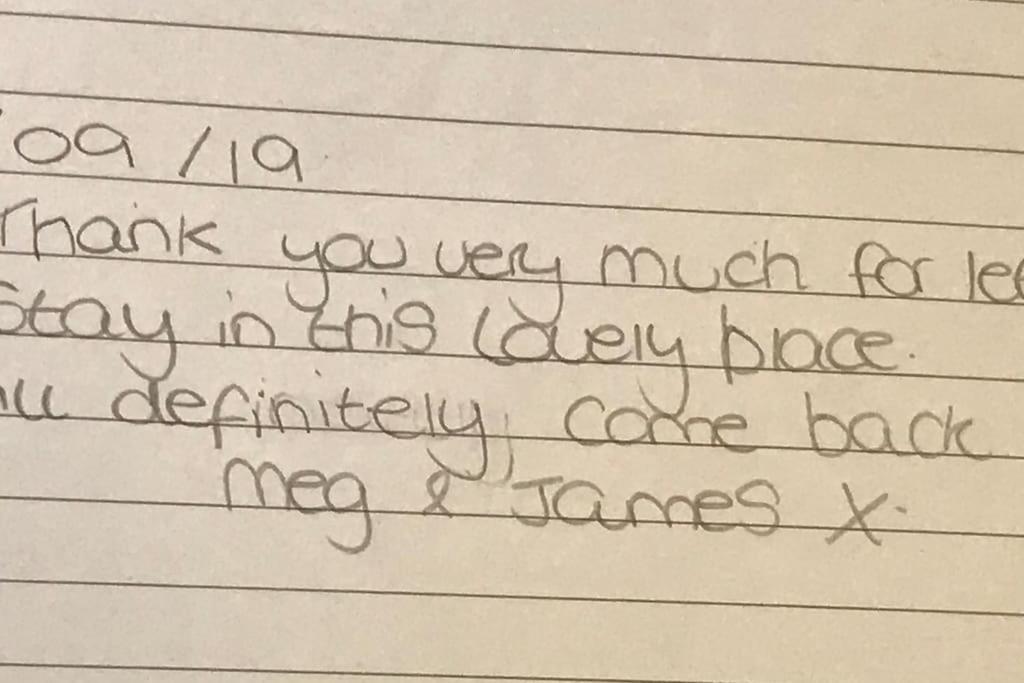 09/19
Thank you very much for
Stay in this lovely place.
definitely come back
Meg & James X.